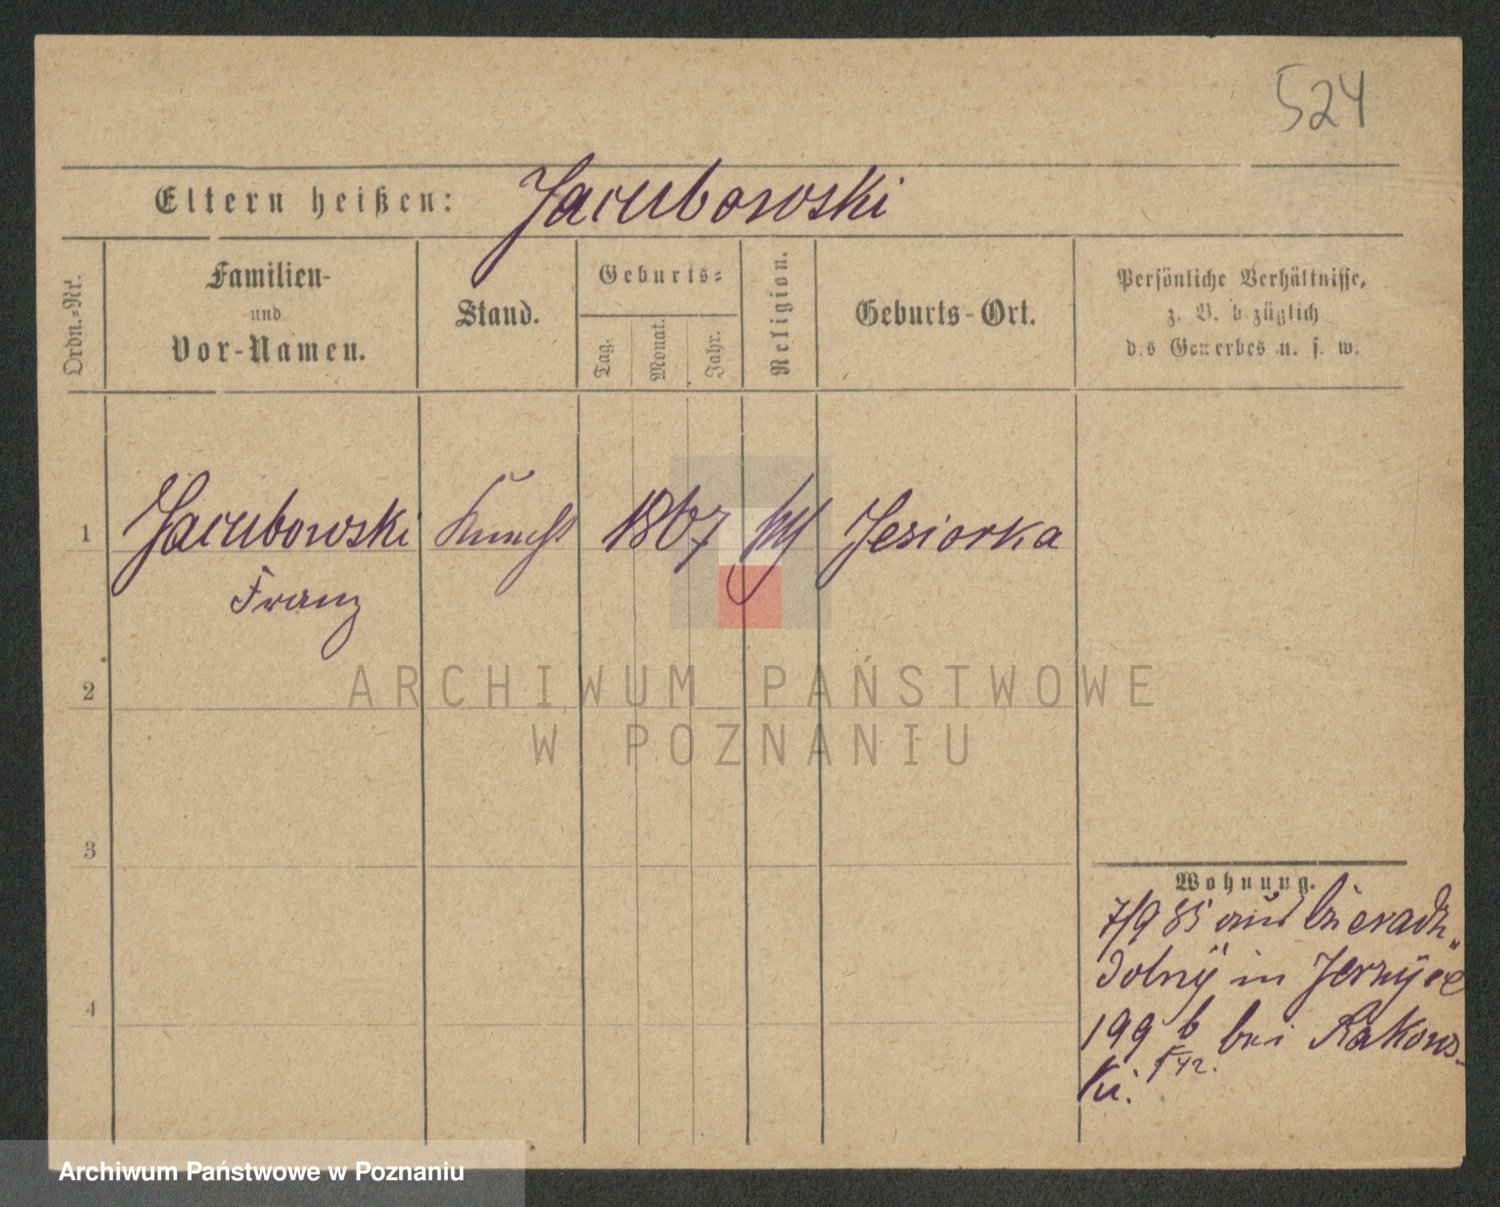 524
Eltern heißen: Jacubowski
Ordn.=Nr.
Familien-
und
Vor-Namen.
Stand.
Geburts=
Tag.
Monat.
Jahr.
Religion.
Geburts-Ort.
Persönliche Verhältnisse,
z. B. b züglich
d s Gewerbes u. s. w.
1 Jacubowski Knecht 1867 Jesiorka
Franz
2
ARCHIWUM PAŃSTWOWE
W POZNANIU
3
Wohnung.
7/9 85 aus
in
4
199 b bei Rakows-
ki.
Archiwum Państwowe w Poznaniu